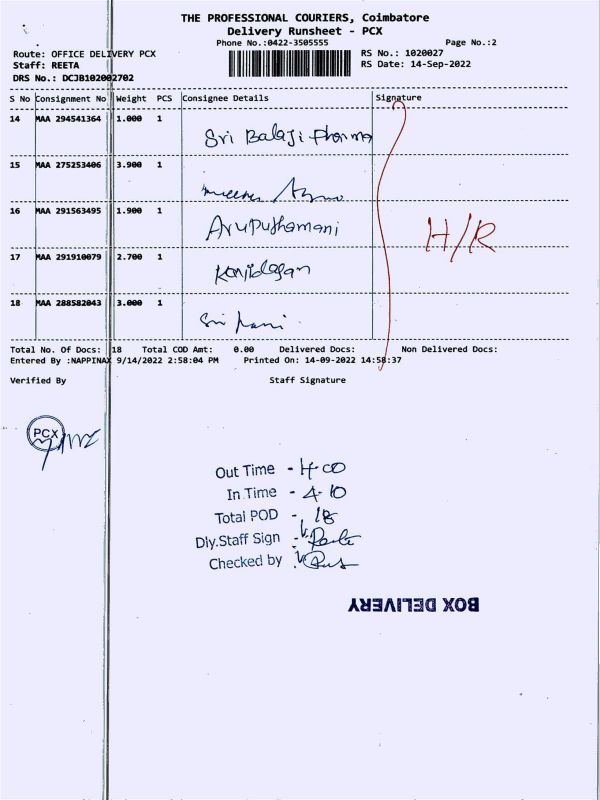 THE PROFESSIONAL COURIERS, Coimbatore
Delivery Runsheet - PCX
Phone No.:0422-3505555 Page No.:2
Route: OFFICE DELIVERY PCX RS No.: 1020027
Staff: REETA RS Date: 14-Sep-2022
DRS No.: DCJB102002702
S No Consignment No Weight PCS Consignee Details Signature
14 MAA 294541364 1.000 1
Sri Balaji Pharma
15 MAA 275253406 3.900 1
16 MAA 291563495 1.900 1
Aruputhamani
H/R
17 MAA 291910079 2.700 1
18 MAA 288582043 3.000 1
Sri
Total No. Of Docs: 18 Total COD Amt: 0.00 Delivered Docs: Non Delivered Docs:
Entered By :NAPPINAX 9/14/2022 2:58:04 PM Printed On: 14-09-2022 14:58:37
Verified By Staff Signature
PCX
Out Time - 4-00
In Time - 4-10
Total POD - 18
Dly.Staff Sign -
Checked by :
BOX DELIVERY